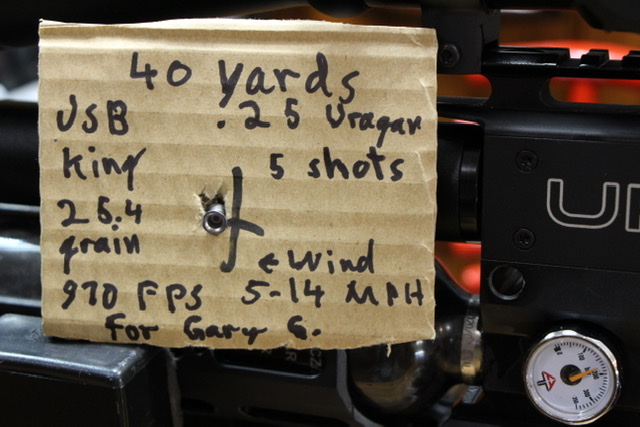 40 yards
JSB .25 Uragan
King 5 shots
25.4
grain
← Wind
970 FPS 5-14 MPH
For Gary G.